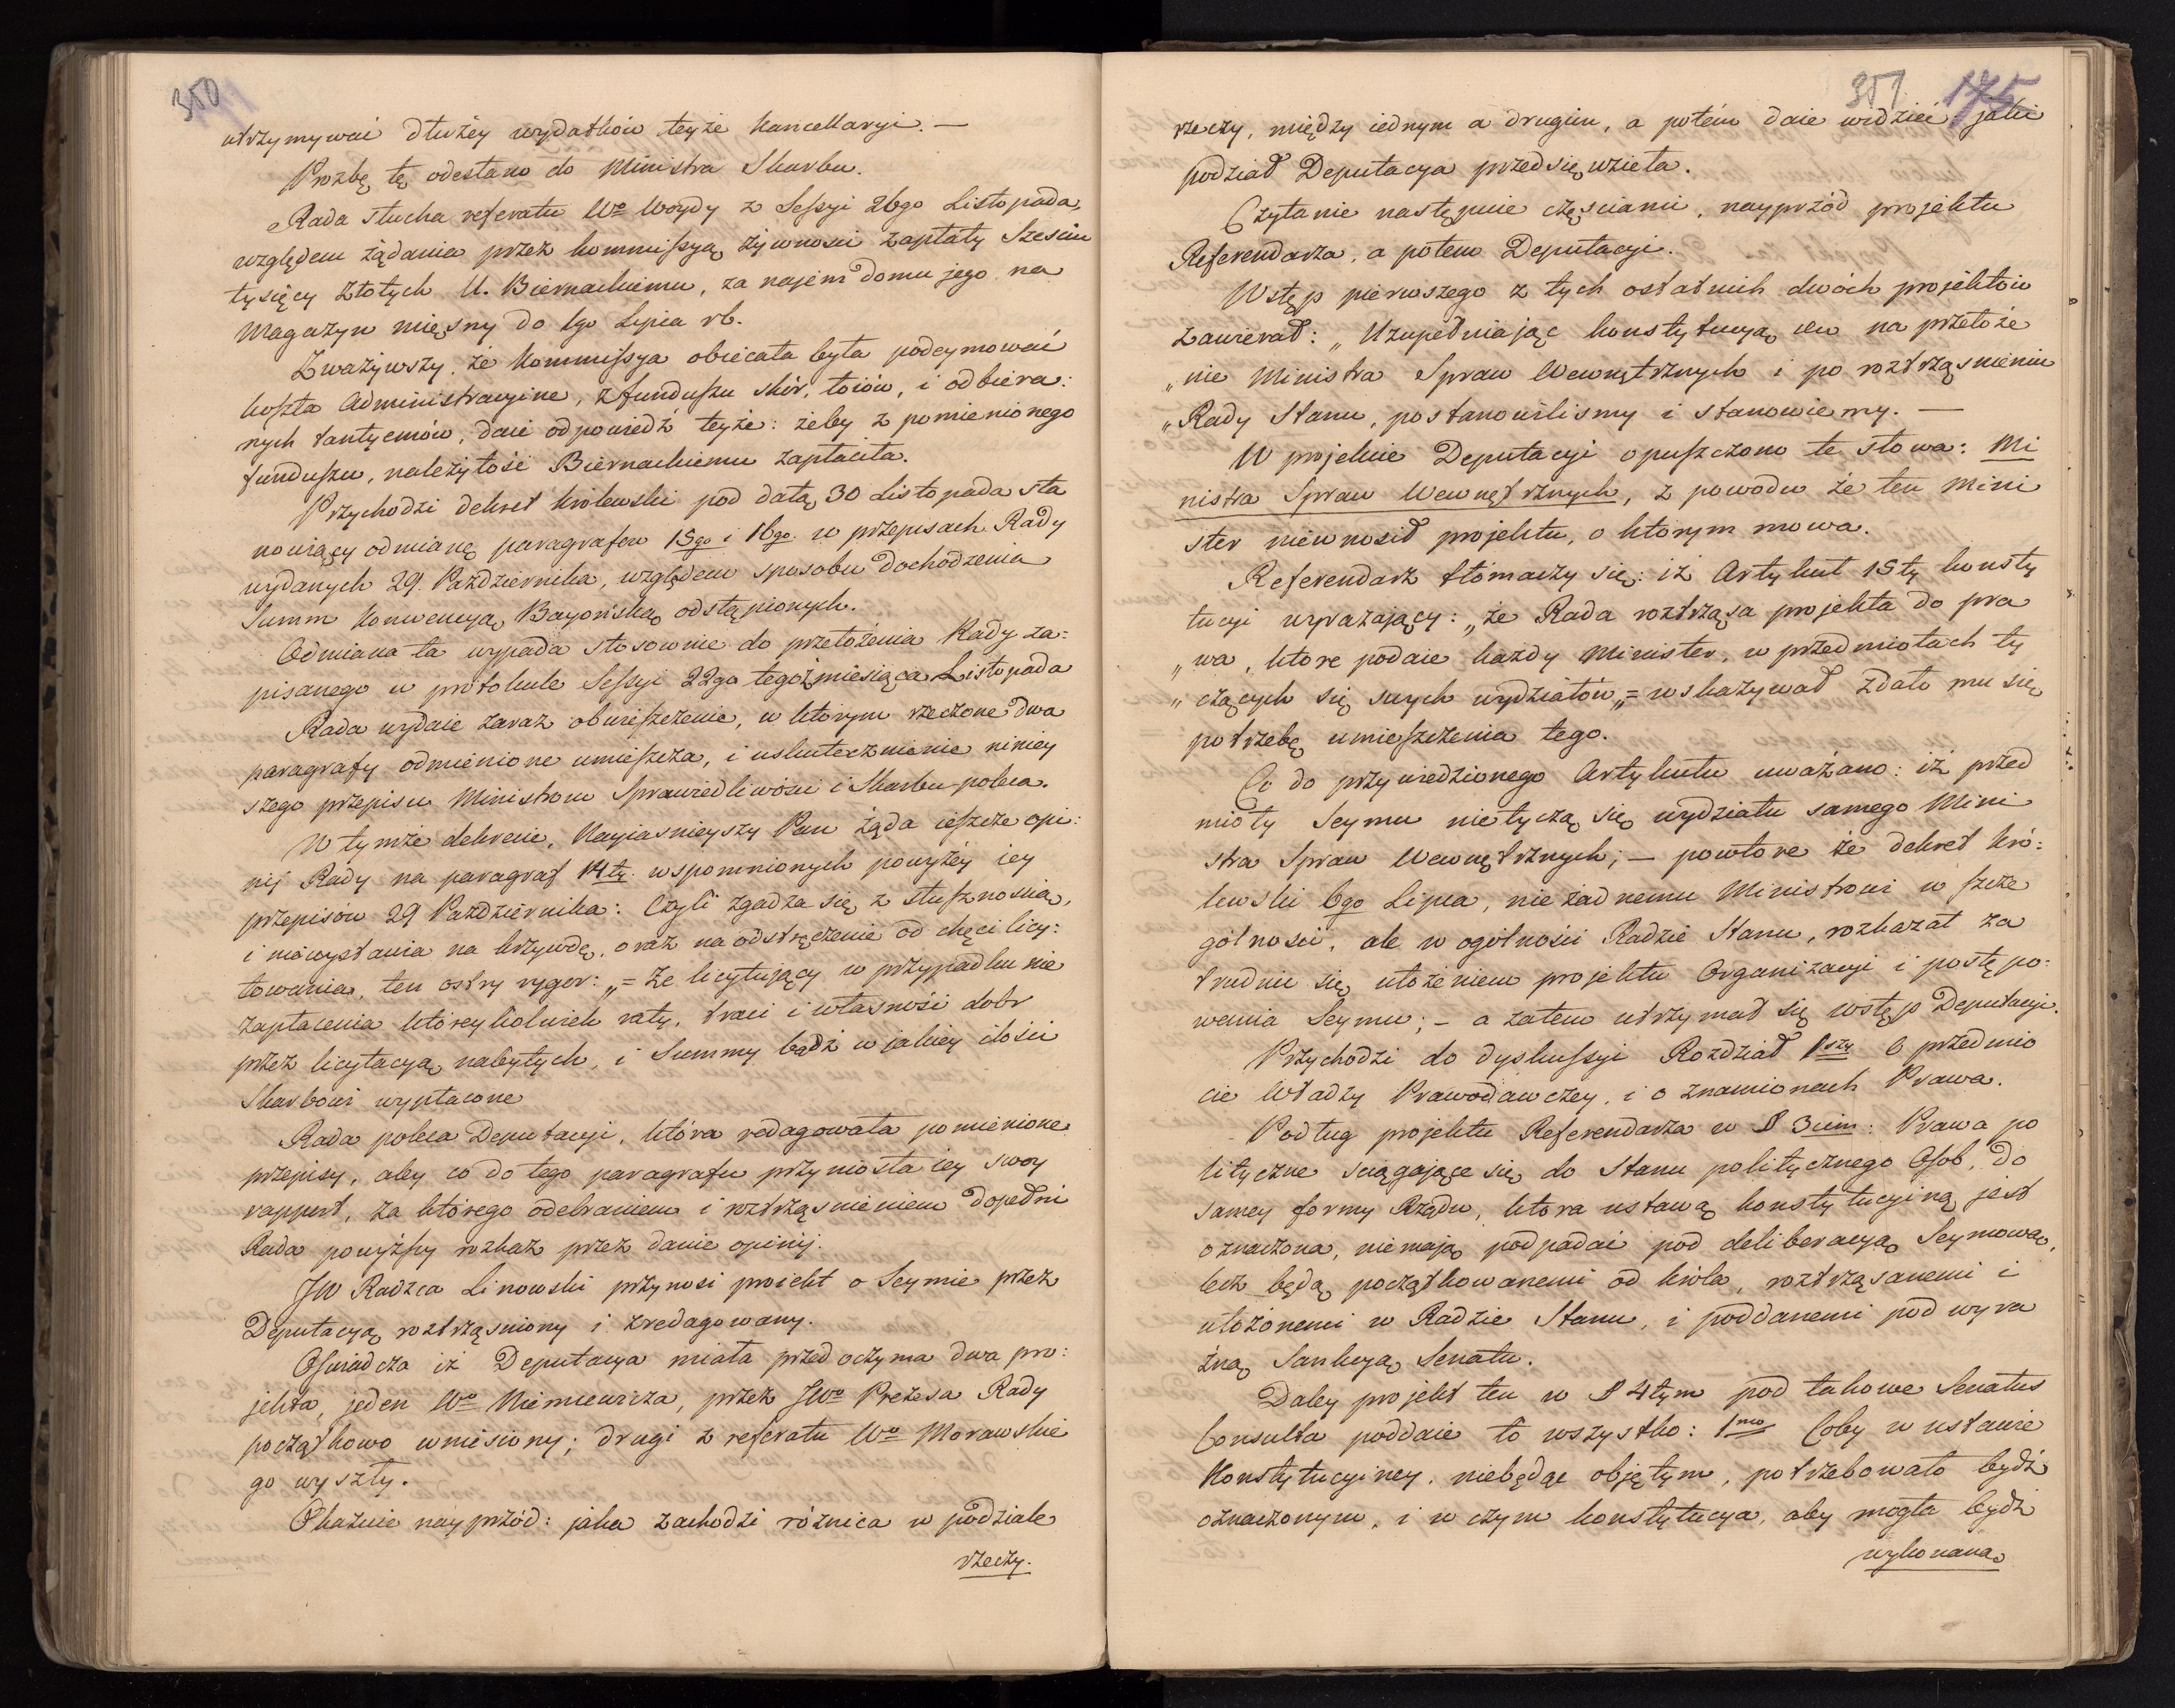 350
utrzymywać dłużey wydatków teyże Kancellaryi. —
Prozbę tę odesłano do Ministra Skarbu.
Rada słucha referatu Wo Woydy z Sessyi 26go Listopada,
względem żądania przez kommissyą żywności zapłaty Sześciu
tysięcy złotych U. Biernackiemu, za najem domu jego na
Magazyn mięsny do 1go Lipca rb.
Zważywszy, że Kommissya obiecała była podeymować
koszta Administracyine, z funduszu skór, łoiów, i odbiera:
nych tantyemów, daie odpowiedź teyże: żeby z pomienionego
funduszu, należytość Biernackiemu zapłaciła.
Przychodzi dekret królewski pod datą 30 Listopada sta
nowiący odmianę paragrafów 15go i 16go. w przepisach Rady
wydanych 29. Października, względem sposobu dochodzenia
Summ konwencyą Bayońską odstąpionych.
Odmiana ta wypada stosownie do przełożenia Rady za=
pisanego w protokule Sessyi 22go tegoż miesiąca Listopada
Rada wydaie zaraz obwieszczenie, w którym rzeczone dwa
paragrafy odmienione umieszcza, i uskutecznienie niniey
szego przepisu Ministrom Sprawiedliwości i Skarbu poleca.
W tymże dekrecie, Nayiaśnieyszy Pan żąda ieszcze opi:
nij Rady na paragraf 14ty. wspomnionych powyżéy iey
przepisów 29 Października: Czyli zgadza się z słusznością,
i niewystawia na krzywdę, oraz na odstręczenie od chęci licy:
towania, ten ostry rygor: „= że licytujący w przypadku nie
zapłacenia któreykolwiek raty, traci i własność dobr
przez licytacyą nabytych, i Summy bądź w jakiey ilości
Skarbowi wypłacone
Rada poleca Deputacyi, która redagowała pomienione
przepisy, aby co do tego paragrafu przyniosła iey swoy
rapport, za którego odebraniem i roztrząśnieniem dopełni
Rada powyższy rozkaz przez danie opinij.
JW Radzca Linowski przynosi proiekt o Seymie przez
Deputacyą roztrząśniony i zredagowany.
Oświadcza iż Deputacya miała przed oczyma dwa pro:
jekta, jeden Wo Niemcewicza, przez JWo Prezesa Rady
początkowo wniesiony; drugi z referatu Wo Morawskie
go wyszły.
Okazuie nayprzód: jaka zachodzi różnica w podziale
rzeczy.
351 175
rzeczy, między iednym a drugim, a potém daie widzieć jaki
podział Deputacya przedsięwzieła.
Czytanie następuie częściami, nayprzód projektu
Referendarza, a potem Deputacyi.
Wstęp pierwszego z tych ostatnich dwóch projektów
zawierał: „Uzupełniając konstytucyą na przełoże
„nie Ministra Spraw Wewnętrznych i po roztrząśnieniu
„Rady Stanu, postanowiliśmy i stanowiemy. —
W projekcie Deputacyi opuszczono te słowa: Mi
nistra Spraw Wewnętrznych, z powodu że ten Mini
ster niewnosił projektu, o którym mowa.
Referendarz tłómaczy się: iż Artykuł 15ty konsty
tucyi wyrażający: „że Rada roztrząsa projekta do pra
„wa, które podaie każdy Minister, w przedmiotach ty
„czących się swych wydziałów „= wskazywał zdało mu się
potrzebę umieszczenia tego.
Co do przywiedzionego Artykułu uważano: iż przed
mioty Seymu nietyczą się wydziału samego Mini
stra Spraw Wewnętrznych; — powtore że dekret kró:
lewski 6go Lipca, nie żadnemu Ministrowi w szcze
gólności, ale w ogólności Radzie Stanu, rozkazał za
trudnić się ułożeniem projektu Organizacyi i postępo:
wania Seymu; — a zatem utrzymał się wstęp Deputacyi.
Przychodzi do dyskussyi Rozdział 1szy O przedmio
cie Władzy Prawodawczey, i o znamionach Prawa.
Podług projektu Referendarza w § 3cim: Prawa po
lityczne sciągające się do Stanu politycznego Osob, do
samey formy Rządu, która ustawą konstytucyiną jest
oznaczona, niemają podpadać pod deliberacyą Seymową,
lecz będą początkowanemi od króla, roztrząsanemi i
ułożonemi w Radzie Stanu, i poddanemi pod wyra
źną Sankcyą Senatu.
Daley projekt ten w § 4tym pod takowe Senatus
Consulta poddaie to wszystko: 1mo Coby w ustawie
Konstytucyiney, niebędąc objętym, potrzebowało bydź
oznaczonym, i w czym konstytucya, aby mogła bydź
wykonaną